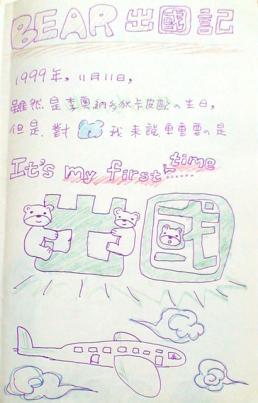 BEAR 出國記
1999年，11月11日，
雖然是李奧納多狄卡皮歐の生日，
但是，對我來說更重要の是
It's my first time
出國